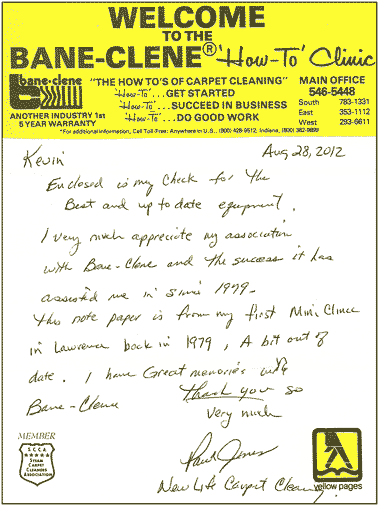 WELCOME
TO THE
BANE-CLENE® 'How-To' Clinic
bane-clene
"THE HOW TO'S OF CARPET CLEANING"
MAIN OFFICE
'How-To'...GET STARTED
546-5448
'How-To'...SUCCEED IN BUSINESS
South 783-1331
ANOTHER INDUSTRY 1st
East 353-1112
5 YEAR WARRANTY
'How-To'...DO GOOD WORK
West 293-6611
*For additional information, Call Toll Free: Anywhere in U.S., (800) 428-9512, Indiana, (800) 382-9899
Kevin
Aug 28, 2012
Enclosed is my check for the
Best and up to date equipment.
I very much appreciate my association
with Bane-Clene and the success it has
assisted me in since 1979.
This note paper is from my first Mini Clinic
in Lawrence back in 1979, A bit out of
date. I have Great memories with
Bane-Clene thank you so
very much
Paul Jones
New Life Carpet Cleaning
MEMBER
SCCA
STEAM
CARPET
CLEANERS
ASSOCIATION
yellow pages